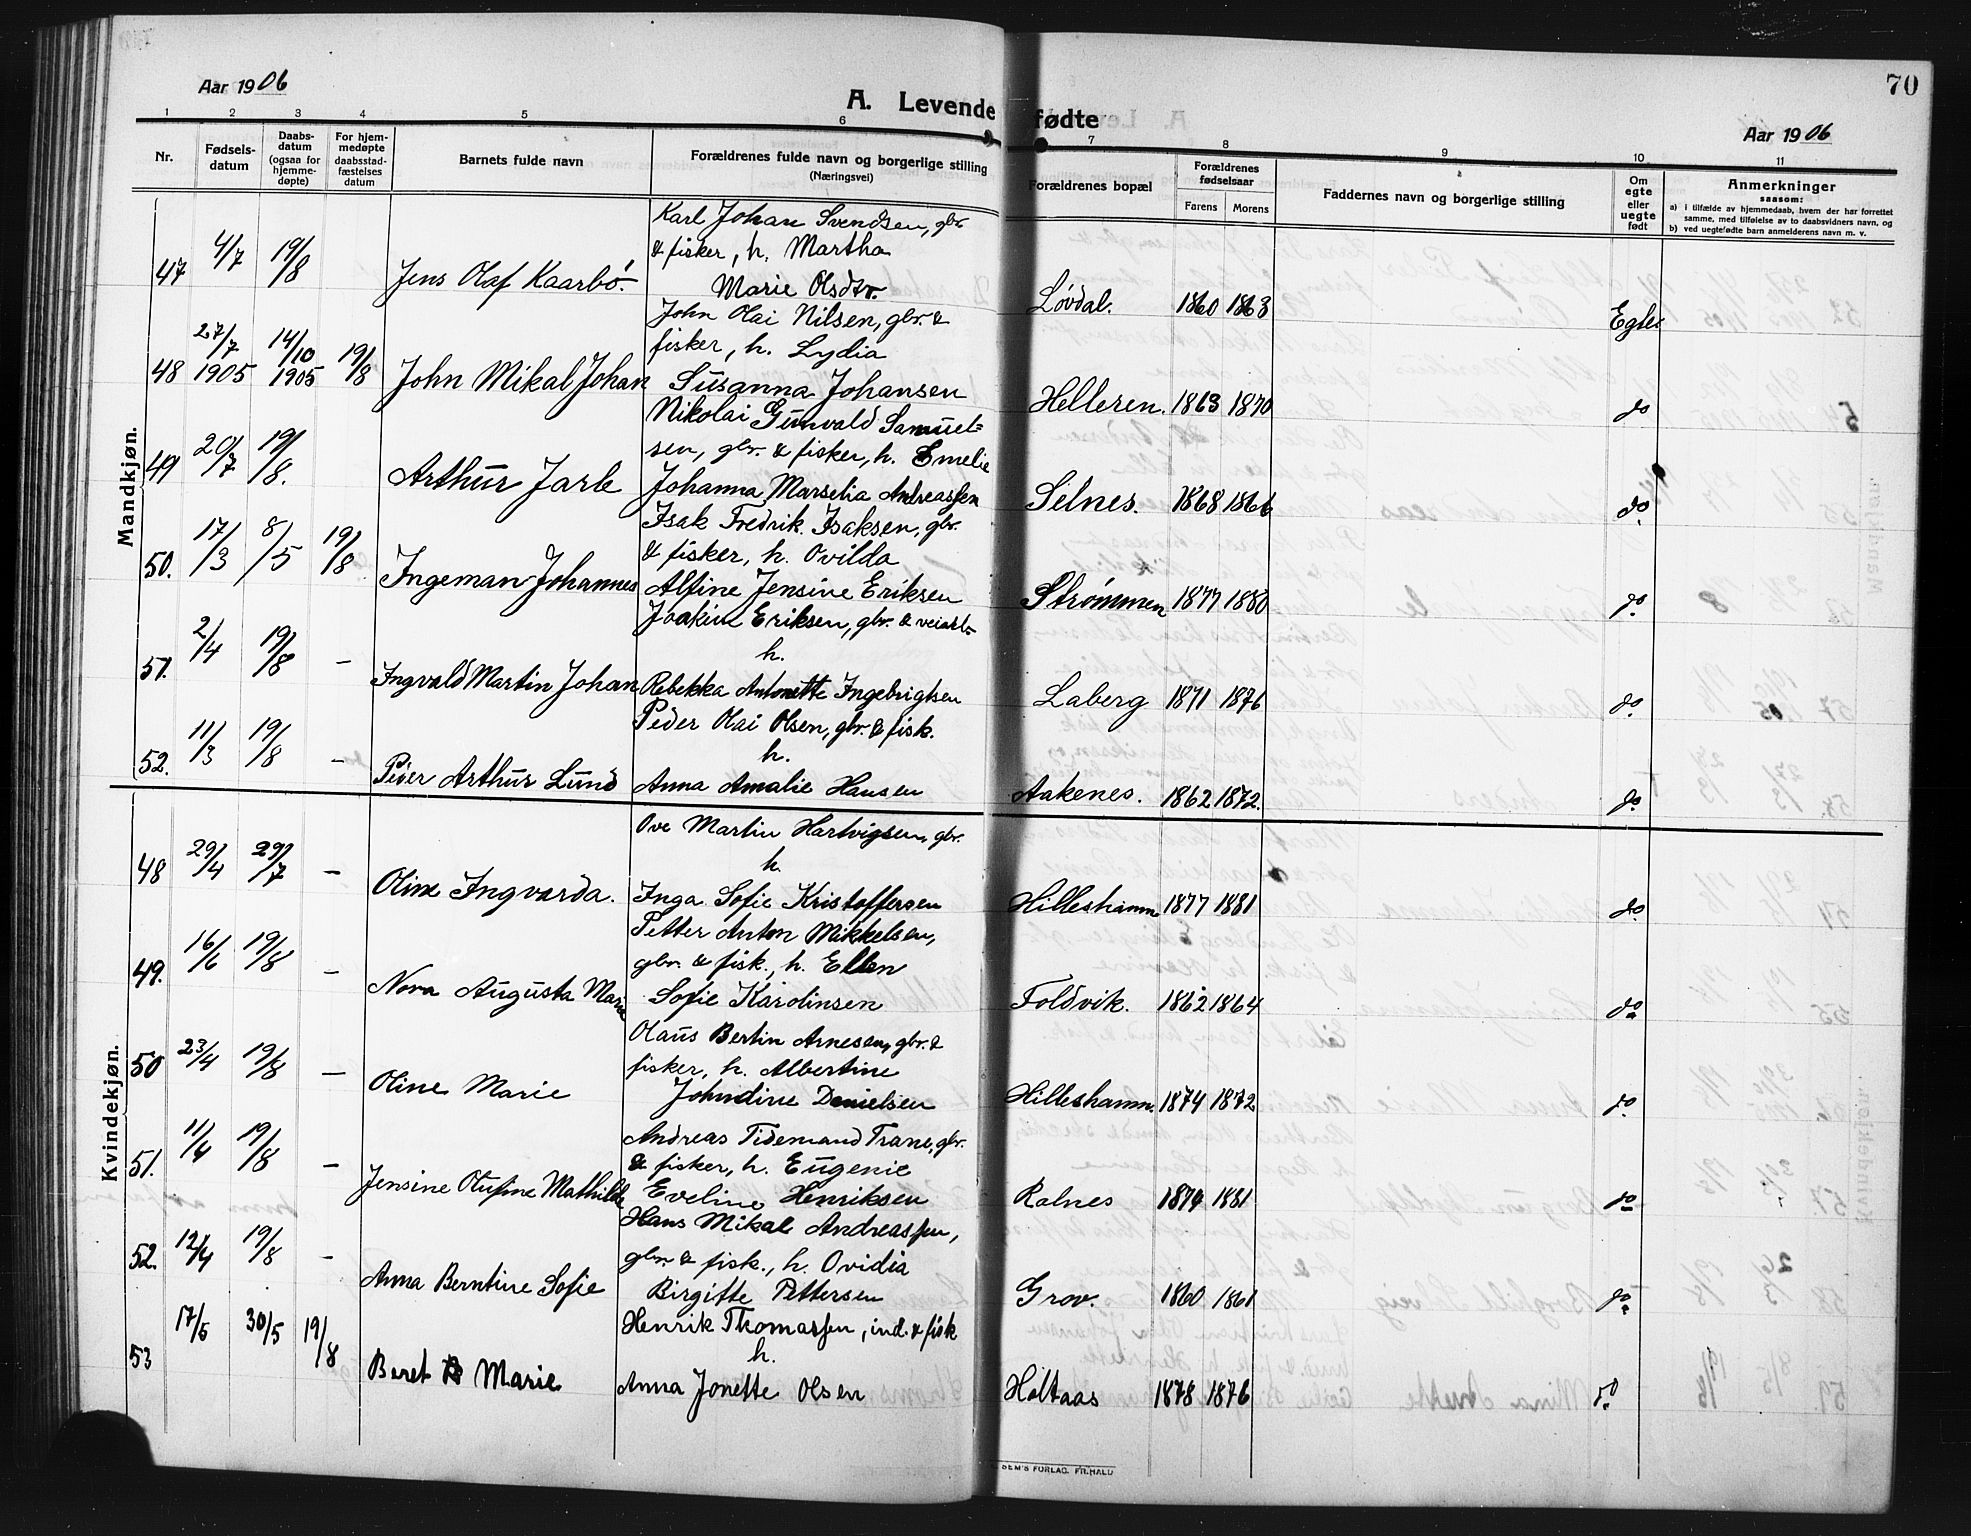 Aar 1906
A. Levende fødte
Aar 1906
70
1 2 3 4 5 6 7 8 9 10 11
Nr.
Fødsels-
datum
Daabs-
datum
(ogsaa for
hjemme-
døpte)
For hjem-
medøpte
daabsstad-
fæstelses
datum
Barnets fulde navn
Forældrenes fulde navn og borgerlige stilling
(Næringsvei)
Forældrenes bopæl
Forældrenes
fødselsaar
Farens Morens
Faddernes navn og borgerlige stilling
Om
egte
eller
uegte
født
Anmerkninger
saasom:
a) i tilfælde av hjemmedaab, hvem der har forrettet
samme, med tilføielse av to daabsvidners navn, og
b) ved uegtefødte barn anmelderens navn m. v.
Mandkjøn.
Karl Johan Svendsen, gbr.
& fisker, h. Martha
47 4/7 19/8 Jens Olaf Kaarbö. Marie Olsdtr. Løvdal. 1860 1863 Egte
John Olai Nilsen, gbr. &
27/7 14/10 fisker, h. Lydia
48 1905 1905 19/8 John Mikal Johan Susanna Johansen Helleren. 1863 1870 do
Nikolai Gunvald Samuel=
sen, gbr. & fisker, h. Emelie
49 20/7 19/8. Arthur Jarle Johanna Marselia Andreassen Selnes. 1868 1866 do
Isak Fredrik Isaksen, gbr.
& fisker, h. Ovilda
50. 17/3 8/5 19/8 Ingeman Johannes Alfine Jensine Eriksen Strømmen 1877 1880 do
Joakim Eriksen, gbr. & veiarb.
h.
51. 2/4 19/8 – Ingvald Martin Johan Rebekka Antonette Ingebrigtsen Laberg 1871 1876 do
Peder Olai Olsen, gbr. & fisk.
h.
52. 11/3 19/8 – Peder Arthur Lund Anna Amalie Hansen Aakenes. 1862 1872. do
Kvindekjøn.
Ove Martin Hartvigsen, gbr.
h.
48 29/4 29/7 – Oline Ingvarda. Inga Sofie Kristoffersen Hilleshamn 1877 1881 do
Petter Anton Mikkelsen,
gbr. & fisk., h. Ellen
49. 16/6 19/8 – Nora Augusta Marie Sofie Karolinsen Foldvik. 1862 1864 do
Olaus Bertin Arnesen, gbr. &
fisker, h. Albertine
50 23/4 19/8 – Oline Marie Johndine Danielsen Hilleshamn. 1874 1872 do
Andreas Tidemand Trane, gbr.
& fisker, h. Eugenie
51. 11/4 19/8 – Jensine Olufine Mathilde Eveline Henriksen Rolnes 1874 1881 do
Hans Mikal Andreassen,
gbr. & fisk., h. Ovidia
52. 12/4 19/8 – Anna Berntine Sofie Birgitte Pettersen Grov. 1860 1861 do
Henrik Thomassen, ind. & fisk
h.
53 17/5 30/5 19/8 Beret Marie Anna Jonette Olsen Holtaas 1878 1876 do
SEM'S FORLAG, FR.HALD